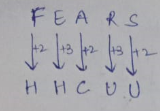 F E A R S
+2 +3 +2 +3 +2
H H C U U